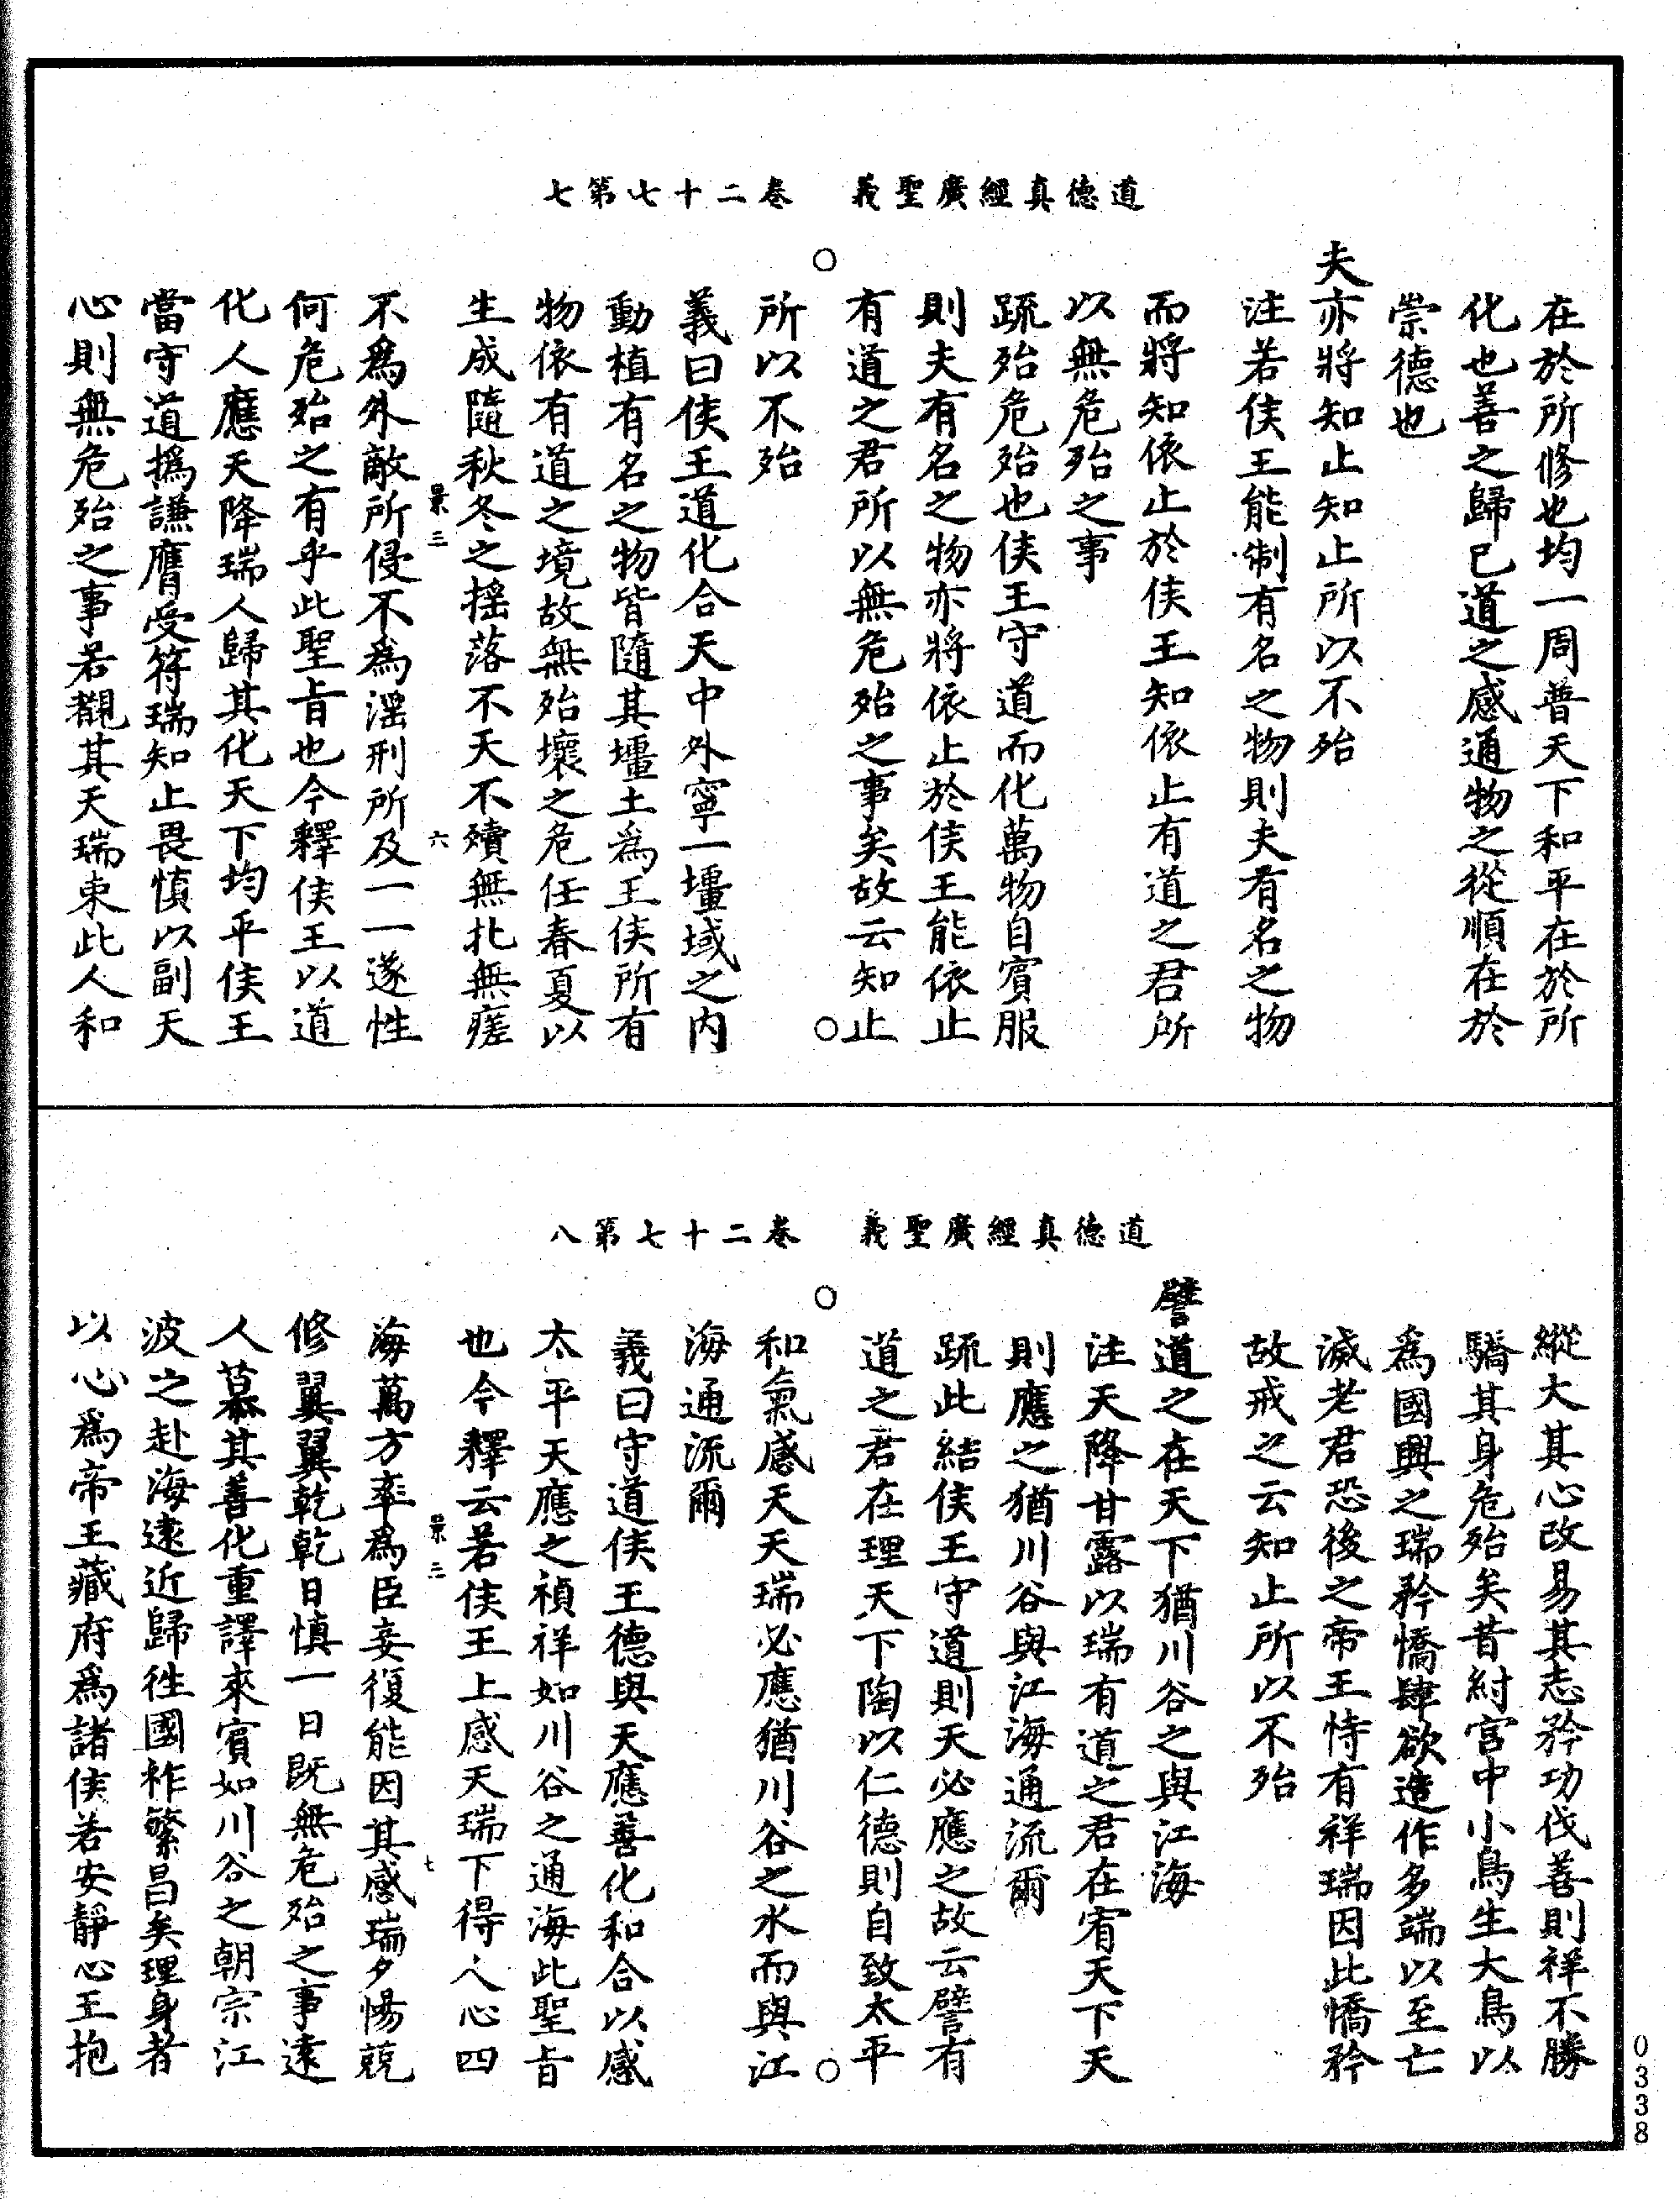 道德真經廣聖義　卷二十七第七
在於所修也均一周普天下和平在於所
化也善之歸已道之感通物之從順在於
崇德也
夫亦將知止知止所以不殆
注若侯王能制有名之物則夫有名之物
而將知依止於侯王知依止有道之君所
以無危殆之事
䟽殆危殆也侯王守道而化萬物自賓服
則夫有名之物亦將依止於侯王能依止
有道之君所以無危殆之事矣故云知止
所以不殆
義曰侯王道化合天中外寧一壃域之內
動植有名之物皆隨其壃土為王侯所有
物依有道之境故無殆壞之危任春夏以
生成隨秋冬之搖落不夭不殰無札無瘥
景三　六
不為外敵所侵不為淫刑所及一一遂性
何危殆之有乎此聖旨也今釋侯王以道
化人應天降瑞人歸其化天下均平侯王
當守道撝謙膺受符瑞知止畏慎以副天
心則無危殆之事若覩其天瑞束此人和
道德真經廣聖義　卷二十七第八
縱大其心改易其志矜功伐善則祥不勝
驕其身危殆矣昔紂宮中小鳥生大鳥以
為國興之瑞矜憍肆欲造作多端以至亡
滅老君恐後之帝王恃有祥瑞因此憍矜
故戒之云知止所以不殆
譬道之在天下猶川谷之與江海
注天降甘露以瑞有道之君在宥天下天
則應之猶川谷與江海通流爾
䟽此結侯王守道則天必應之故云譬有
道之君在理天下陶以仁德則自致太平
和氣感天天瑞必應猶川谷之水而與江
海通流爾
義曰守道侯王德與天應善化和合以感
太平天應之禎祥如川谷之通海此聖旨
也今釋云若侯王上感天瑞下得人心四
景三　七
海萬方率為臣妾復能因其感瑞夕惕兢
修翼翼乾乾日慎一日既無危殆之事遠
人慕其善化重譯來賓如川谷之朝宗江
波之赴海遠近歸往國祚繁昌矣理身者
以心為帝王藏府為諸侯若安靜心王抱
0338